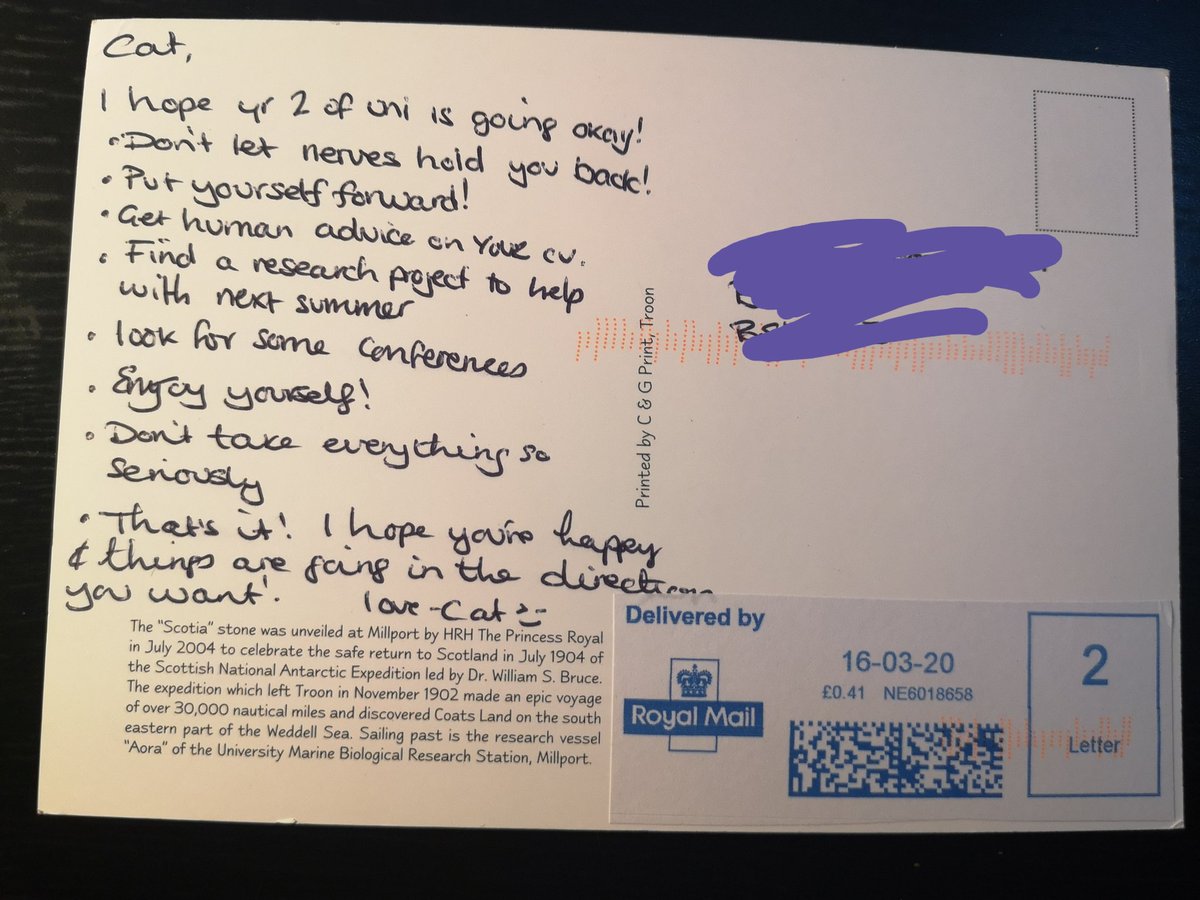 Cat,
I hope yr 2 of uni is going okay!
• Don't let nerves hold you back!
• Put yourself forward!
• Get human advice on your cv.
• Find a research project to help
with next summer
• look for some conferences
• Enjoy yourself!
• Don't take everything so
seriously
• That's it! I hope you're happy
& things are going in the direction
you want!
love -Cat
The “Scotia” stone was unveiled at Millport by HRH The Princess Royal
in July 2004 to celebrate the safe return to Scotland in July 1904 of
the Scottish National Antarctic Expedition led by Dr. William S. Bruce.
The expedition which left Troon in November 1902 made an epic voyage
of over 30,000 nautical miles and discovered Coats Land on the south
eastern part of the Weddell Sea. Sailing past is the research vessel
“Aora” of the University Marine Biological Research Station, Millport.
Printed by C & G Print, Troon
Delivered by
Royal Mail
16-03-20
£0.41 NE6018658
2
Letter